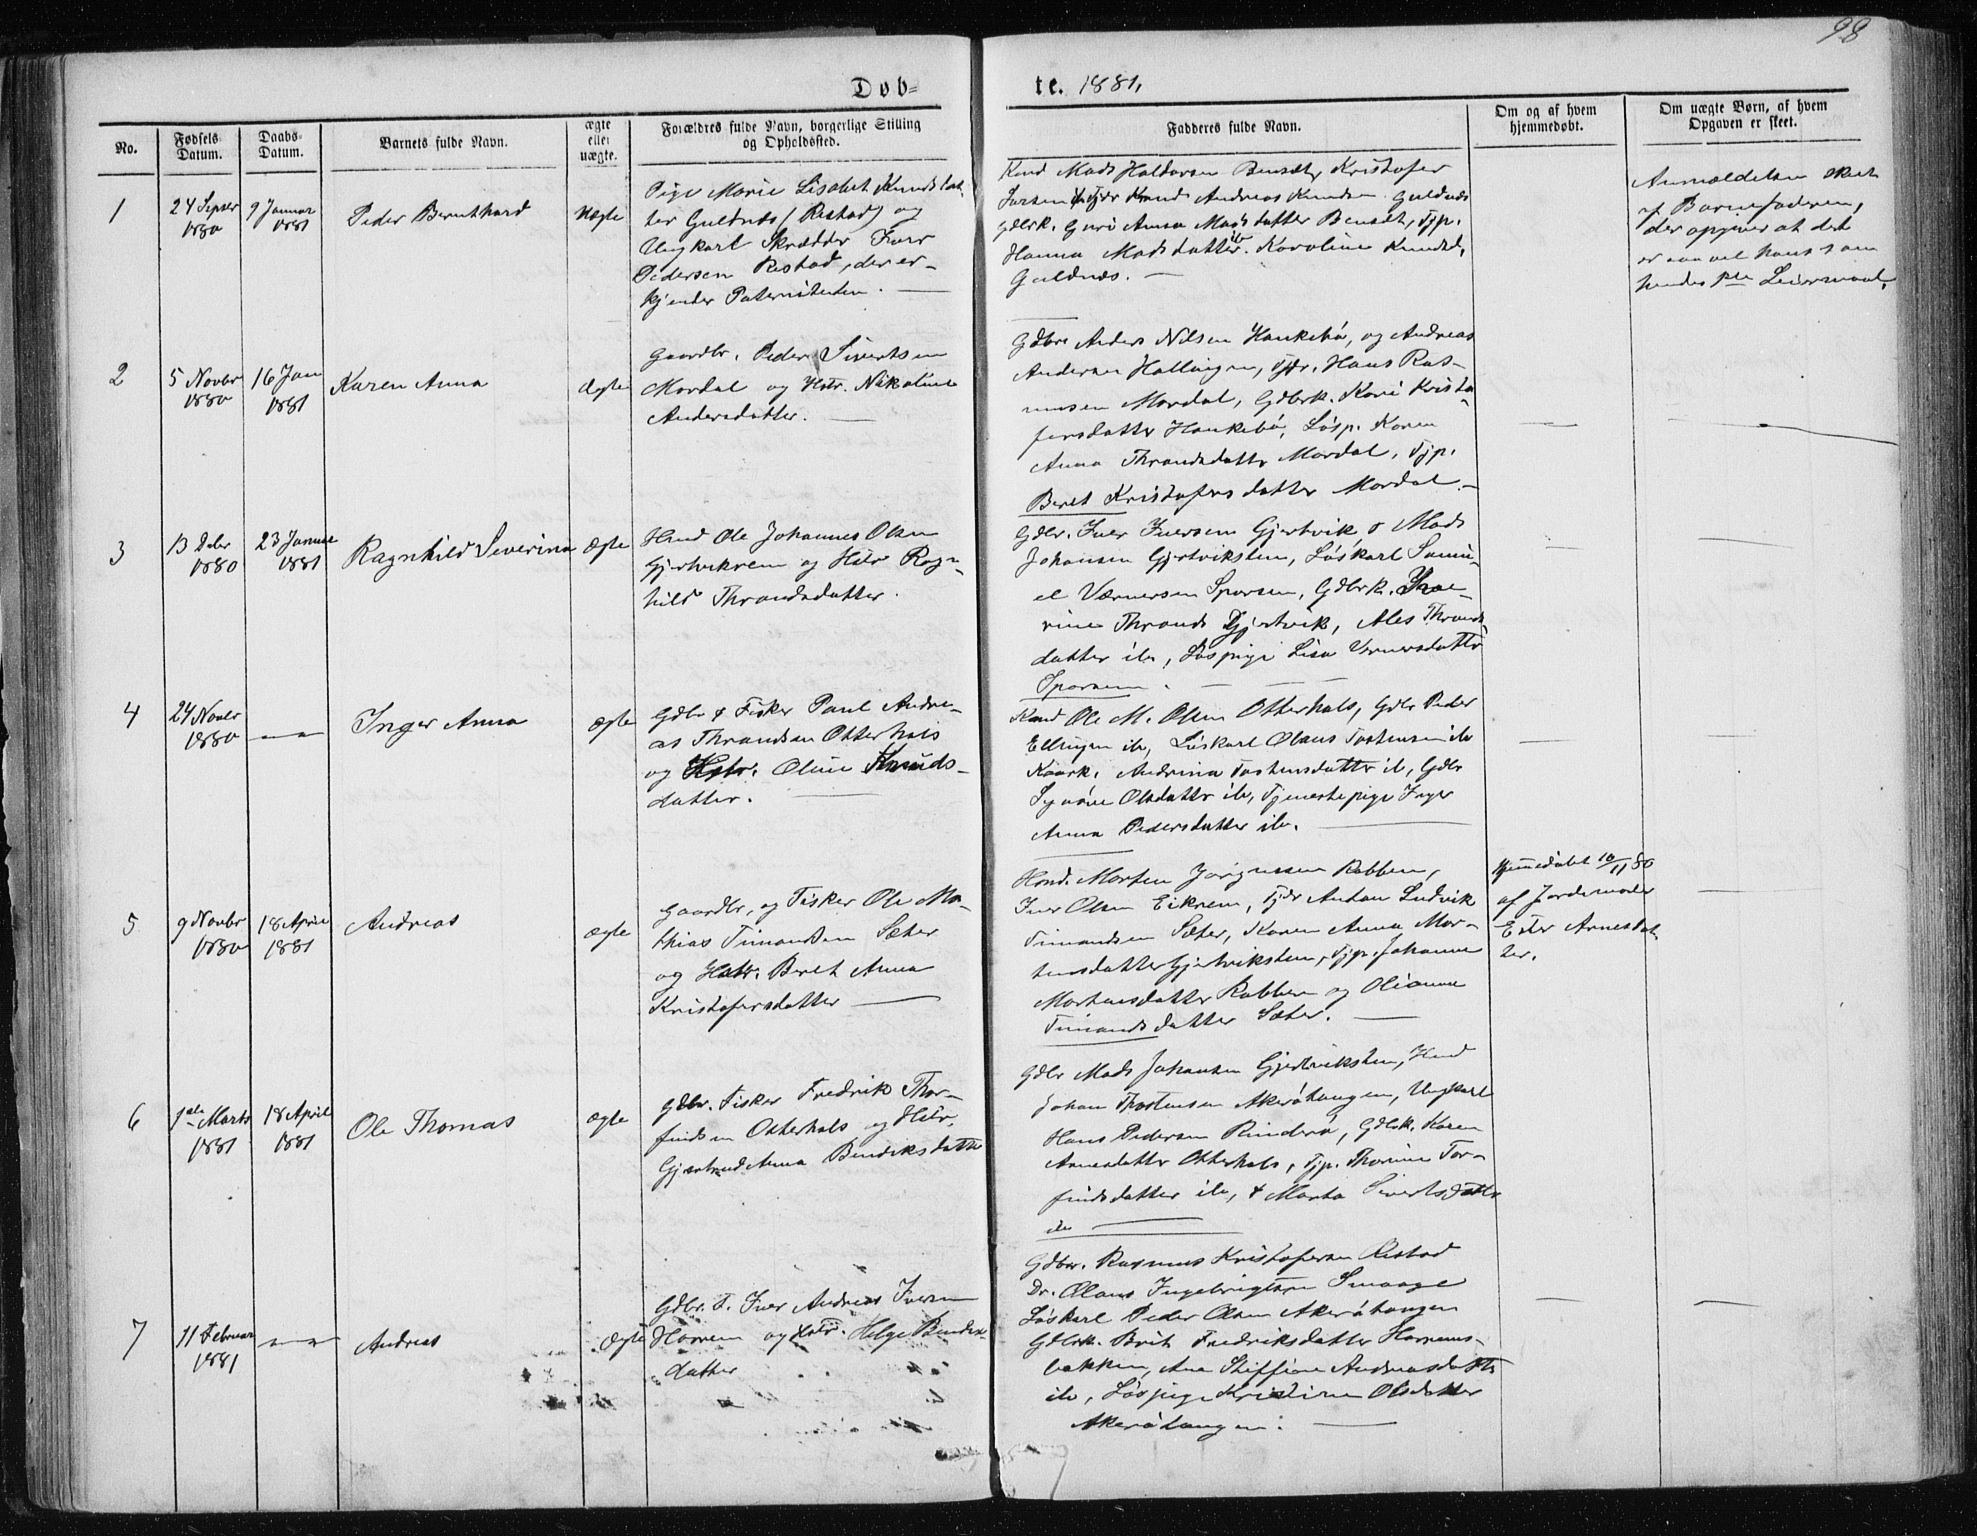 98
Døb=
te. 1881.
No.
Fødsels
Datum.
Daabs-
Datum.
Barnets fulde Navn.
ægte
eller
uægte.
Forældres fulde Navn, borgerlige Stilling
og Opholdssted.
Fadderes fulde Navn.
Om og af hvem
hjemmedøbt.
Om uægte Børn, af hvem
Opgaven er skeet.
1
24 Septer
1880
9 Januar
1881
Peder Bernthard
Uægte
Pige Marie Lisabet Knudsdat-
ter Guldnæs (Ristad) og
Ungkarl Skrædder Iver
Pedersen Ristad, der er-
kjender Paterniteten.
Mads Haldorsen Bensæt, Kristofer
Andreas Knudsen Guldnæs
Gdbrk. Guri Anna Madsdatter Bensæt, Tjp.
Hanna Madsdatter ib. Karoline Knudsd.
Guldnæs.
Anmeldelsen skeet
af Barnefaderen,
der opgiver at det
er saavel hans som
hendes 1ste Leiermaal.
2
5 Novbr
1880
16 Jan
1881
Karen Anna
Ægte
Gaardbr. Peder Sivertsen
Mordal og Hstr. Nikoline
Andersdatter.
Gdbr. Anders Nilsen Haukebø, og Andreas
Andersen Hallingen, Tjdr. Hans Ras-
musen Mordal, Gdbrk. Kari Kristo-
fersdatter Haukebø, Løsp. Karen
Anna Thrandsdattr Mordal, Tjp.
Beret Kristofersdatter Mordal.
3
13 Debr
1880
23 Januar
1881
Ragnhild Severina
Ægte
Hmd Ole Johannes Olsen
og Hstr Ragn-
hild Thrandsdatter.
Gdbr. Iver Iversen Gjertvik & Mads
Johansen Gjertviksten, Løskarl Samu-
el Værnersen Sporsem, Gdbrk.
Thrands Gjertvik, Ales Thrands-
datter ib., Løspige Lisa Vernersdattr
Sporsem.
4
24 Novbr
1880
Inger Anna
Ægte
Gdbr & Fisker Paul Andre-
as Thrandsen Otterhals
og Hstr. Oline Knuds-
datter.
Ole M. Olsen Otterhals, Gdbr Peder
Ellingsen ib, Løskarl Olaus Tostensen ib
Andrina Tostensdatter ib, Gdbr
Olsdatter ib, Tjenestepige Inger
Anna Pedersdatter ib.
5
9 Novbr
1880
18 April
1881
Andreas
ægte
Gaardbr. og Fisker Ole Ma-
thias Timandsen Sæter
og Hstr. Beret Anna
Kristofersdatter
Hmd. Morten Jørgensen Rabben,
Iver Olsen Eikrem, Tjdr Anton Ludvik
Timandsen Sæter, Karen Anna Mor-
tensdatter Gjertviksten, Tjp. Johanna
Mortensdatter Rabben og Olianna
Timandsdatter Sæter.
Hjemmedøbt 10/11 80
af Jordemoder
Ester Arnesdat-
ter.
6
1ste Marts
1881
18 April
1881
Ole Thomas
ægte
Gdbr. Fisker Fredrik Thor-
findsen Otterhals og Hstr.
Gjertrud Anna Bendiksdatter
Gdbr Mads Johansen Gjertviksten, Hmd
Johan Thostensen Akerøtangen, Ungkarl
Hans Pedersen Rinderø, Gdbrk. Karen
Arnesdatter Otterhals, Tjp. Thorine Tor-
findsdatter ib, & Marta Sivertsdattr
do
7
11 Februar
1881
Andreas
Ægte
Gdbr. F. Iver Andreas Iversen
Harnem og Hstr. Helge Bendix-
datter
Gdbr. Rasmus Kristofersen Ristad
Do. Olaus Ingebrigtsen Smaage
Løskarl Peder Olsen Akerøtangen
Gdbrk. Brit Fredriksdatter Harnems-
bakken, Ane Steffine Andreasdattr
ib, Løspige Kristine Olsdatter
Akerøtangen.